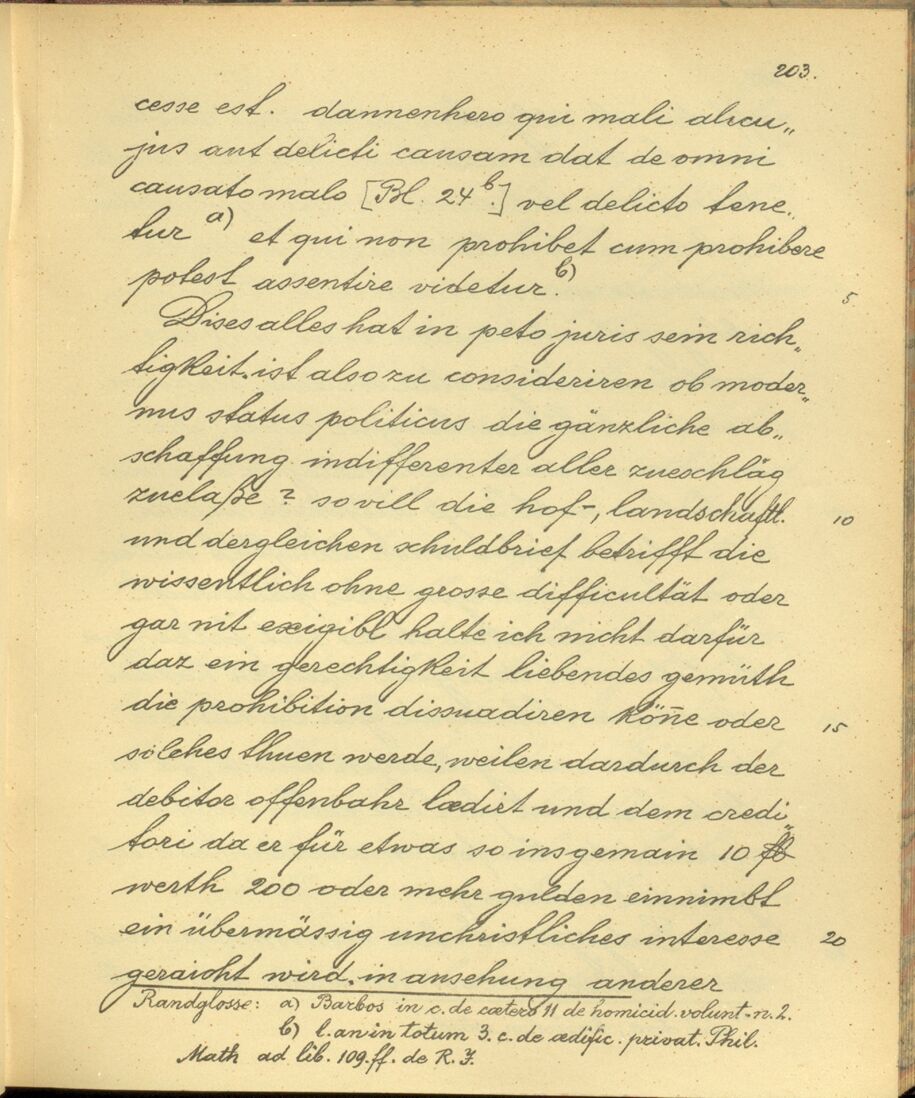 203.
cesse est. dannenhero qui mali alicu„
jus aut delicti causam dat de omni
causato malo [Bl. 24ᵇ.] vel delicto tene„
tur a) et qui non prohibet cum prohibere
potest assentire videtur. b)
5
Dises alles hat in peto juris sein rich„
tigkeit. ist also zu consideriren ob moder„
nus status politicus die gänzliche ab„
schaffung indifferenter aller zueschläg
zuelaße? so vill die hof-, landschaftl. 10
und dergleichen schuldbrief betrifft die
wissentlich ohne grosse difficultät oder
gar nit exigibl halte ich nicht darfür
daz ein gerechtigkeit liebendes gemüth
die prohibition dissuadiren kön̄e oder 15
solches thuen werde, weilen dardurch der
debitor offenbahr lædirt und dem credi„
tori da er für etwas so insgemain 10 fl
werth 200 oder mehr gulden einnimbt
ein übermässig unchristliches interesse 20
geraicht wird. in ansehung anderer
Randglosse: a) Barbos in c. de cætero 11 de homicid. volunt. n. 2.
b) l. an in totum 3. c. de ædific. privat. Phil.
Math ad lib. 109. ff. de R. J.